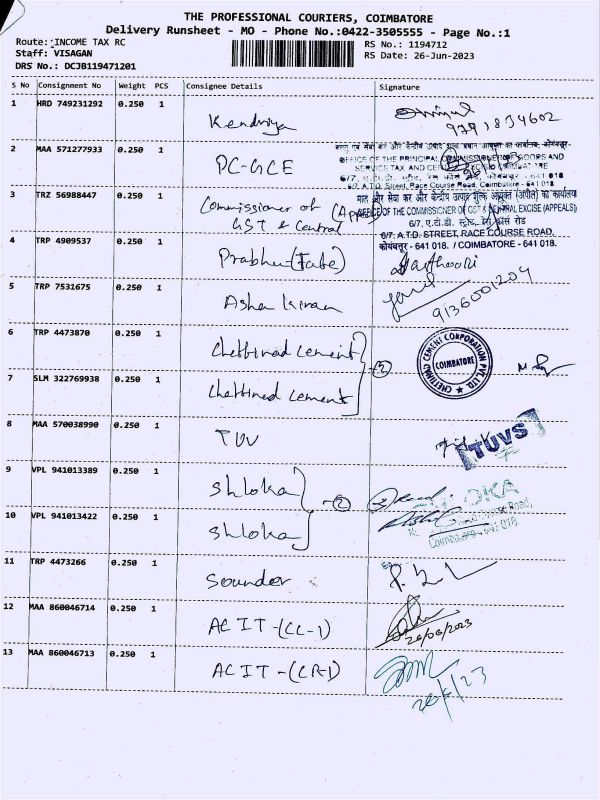 THE PROFESSIONAL COURIERS, COIMBATORE
Delivery Runsheet - MO - Phone No.:0422-3505555 - Page No.:1
Route: INCOME TAX RC
RS No.: 1194712
Staff: VISAGAN
RS Date: 26-Jun-2023
DRS No.: DCJB119471201
S No Consignment No Weight PCS Consignee Details Signature
1 HRD 749231292 0.250 1 Kendriya
2 MAA 571277933 0.250 1 PC-GCE
OFFICE OF THE PRINCIPAL COMMISSIONER OF GOODS AND
6/7, A.T.D. Street, Race Course Road, Coimbatore - 641 018
3 TRZ 56988447 0.250 1 Commissioner of GST & Central
माल और सेवा कर और केन्द्रीय उत्पाद शुल्क आयुक्त (अपील) का कार्यालय
OFFICE OF THE COMMISSIONER OF GST & CENTRAL EXCISE (APPEALS)
6/7, ए.टी.डी. स्ट्रीट, रेस कोर्स रोड
6/7, A.T.D. STREET, RACE COURSE ROAD,
कोयंबत्तूर - 641 018. / COIMBATORE - 641 018.
4 TRP 4909537 0.250 1 Prabhu-(Fabe)
5 TRP 7531675 0.250 1 Asha Kiran 9136001204
6 TRP 4473870 0.250 1 Chettinad cement
2
CHETTINAD CEMENT CORPORATION PVT. LTD.
COIMBATORE
7 SLM 322769938 0.250 1 Chettinad cement
8 MAA 570038990 0.250 1 TUV
TUVS
9 VPL 941013389 0.250 1 Shloka
-2
10 VPL 941013422 0.250 1 Shloka
11 TRP 4473266 0.250 1 Sounder
12 MAA 860046714 0.250 1 ACIT-(CC-1)
26/06/2023
13 MAA 860046713 0.250 1 ACIT-(CR-1)
26/6/23